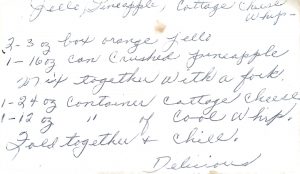 Jello, Pineapple, Cottage Cheese
Whip
2-3 oz box orange Jello
1-16oz can Crushed pineapple
Mix together with a fork.
1-24 oz Container Cottage Cheese
1-12 oz " of Cool Whip.
Fold together & Chill.
Delicious